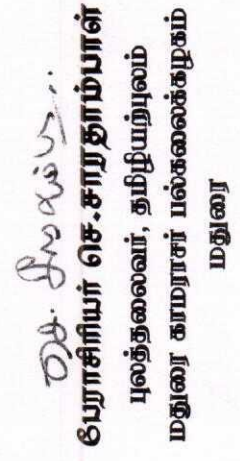 பேராசிரியர் செ.சாரதாம்பாள்
புலத்தலைவர், தமிழியற்புலம்
மதுரை காமராசர் பல்கலைக்கழகம்
மதுரை